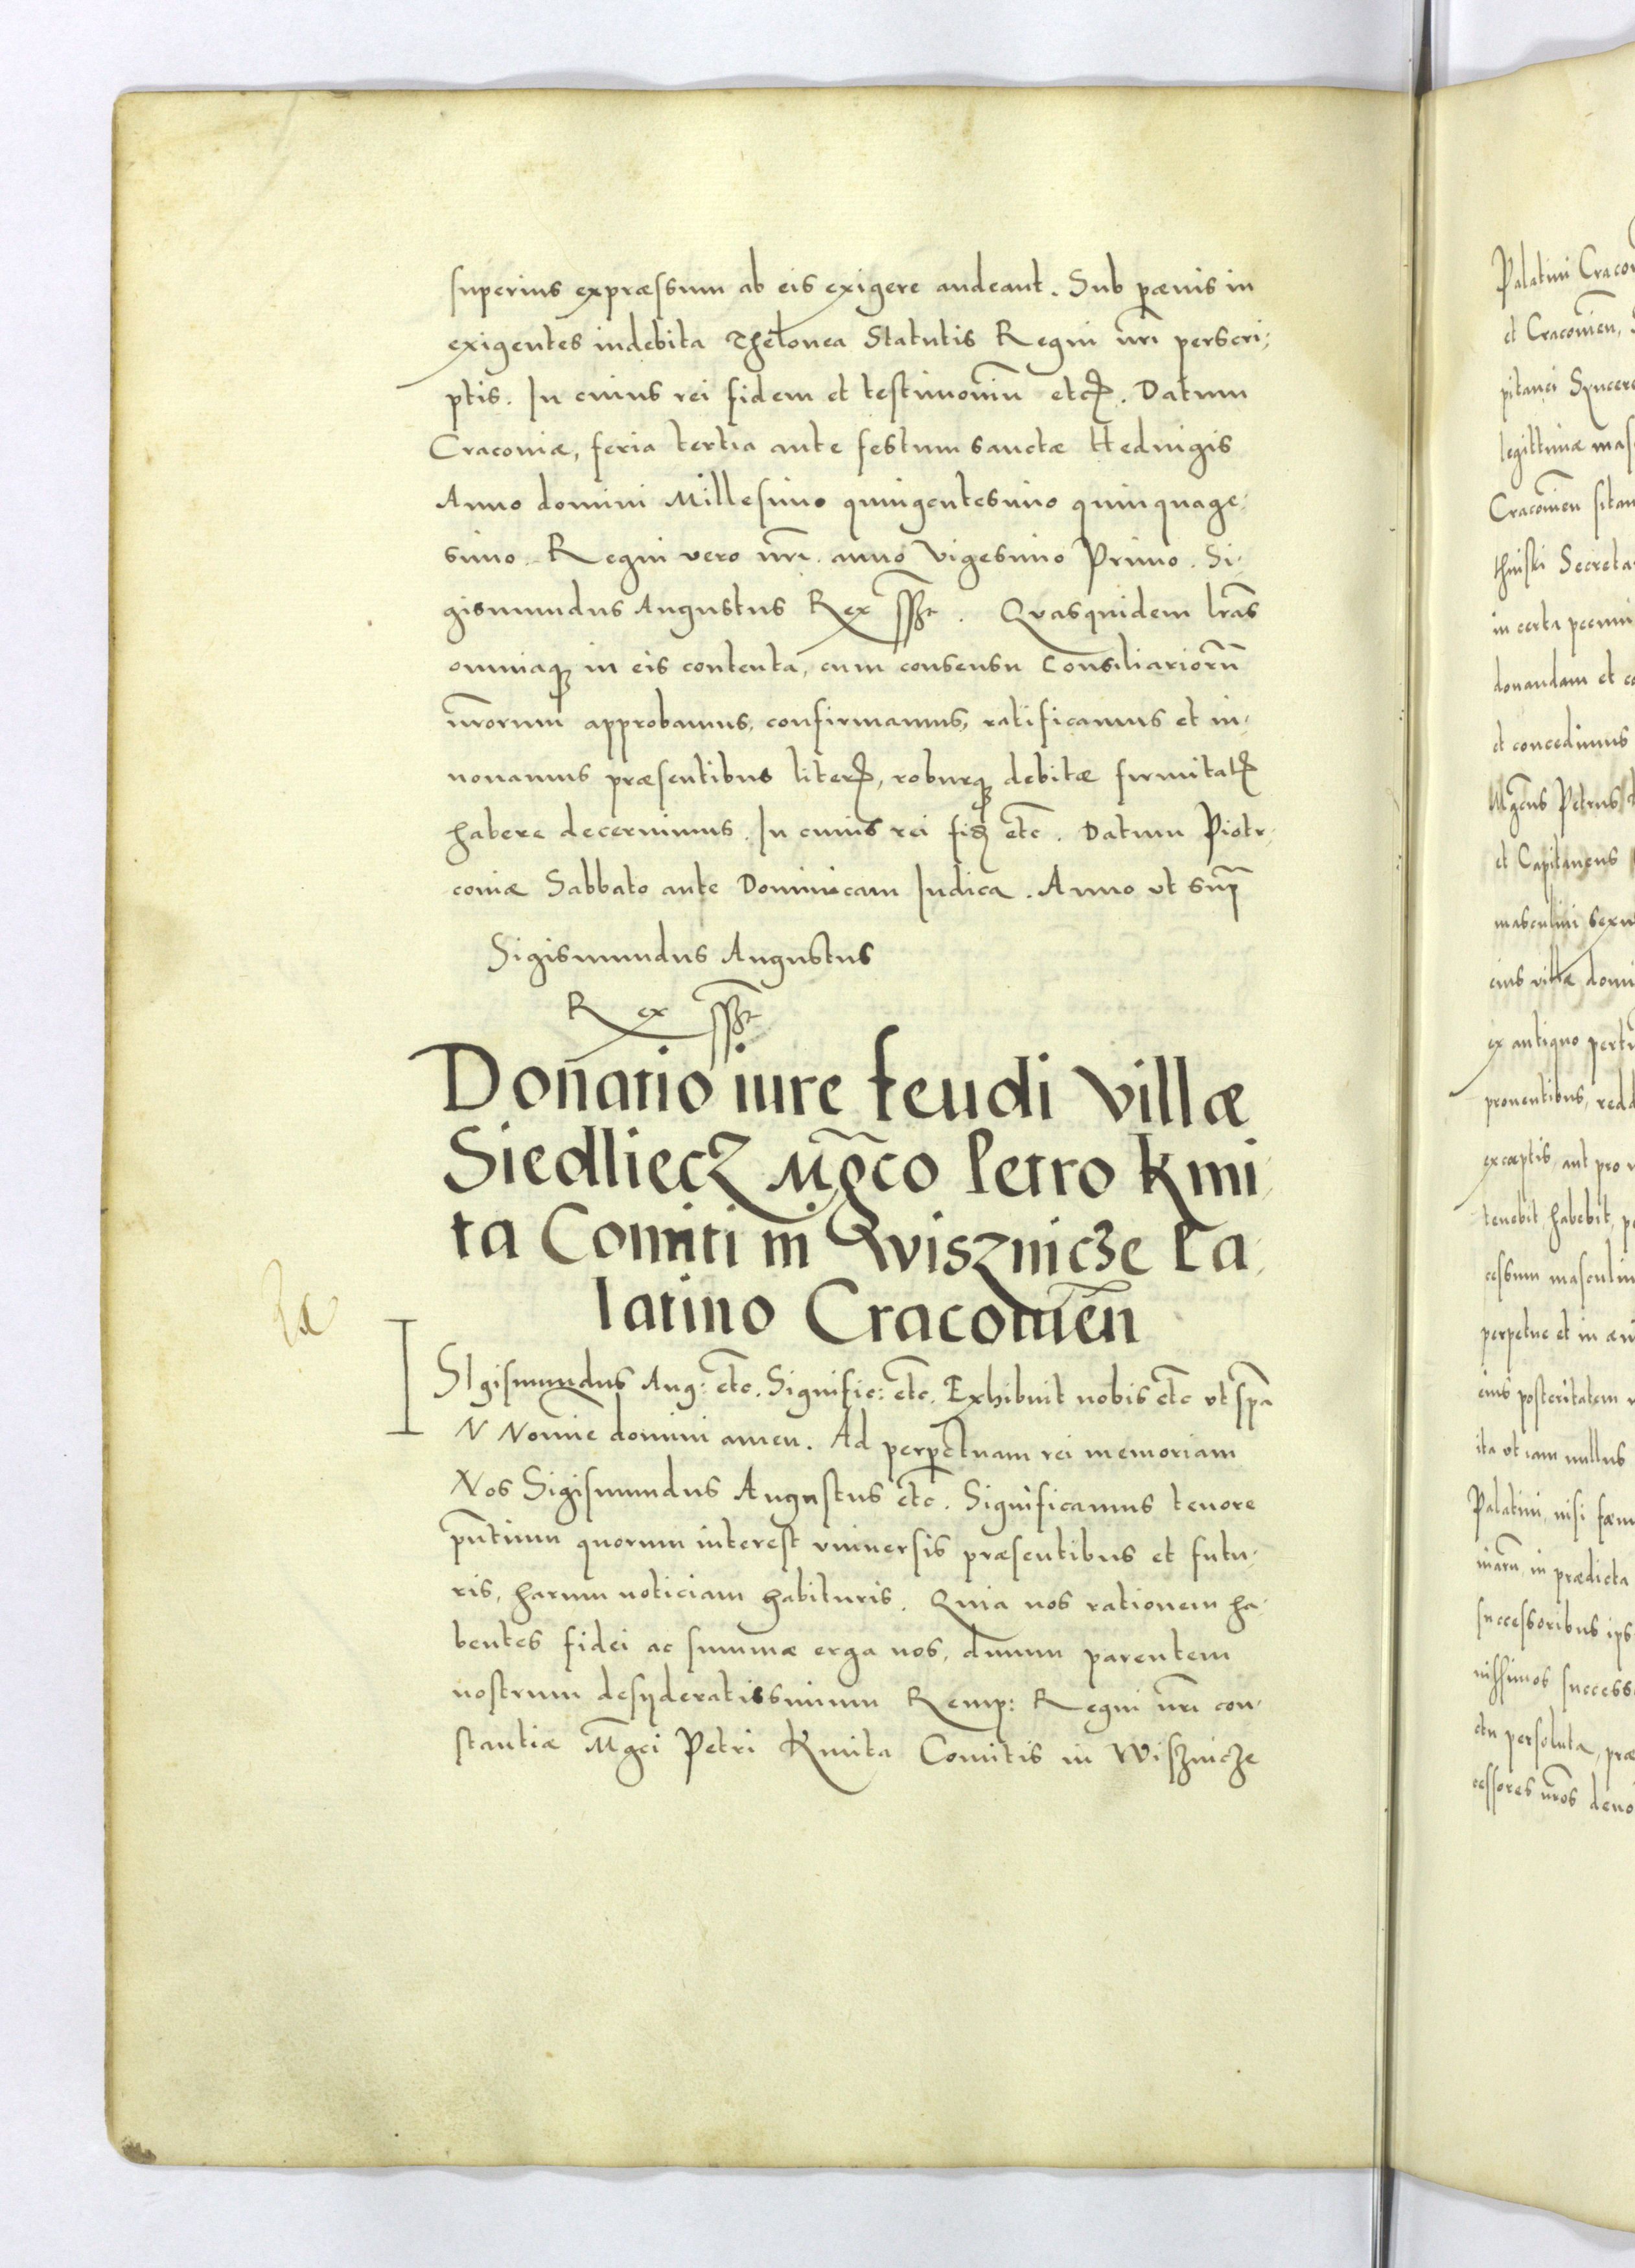 superius expræssum ab eis exigere audeant. Sub pœnis in
exigentes indebita Thelonea Statutis Regni nr̃i perscri,
ptis. In cuius rei fidem et testimoniũ etcꝭ. Datum
Cracoviæ, feria tertia ante festum sanctæ Heduigis
Anno domini Millesimo quingentesimo quinquage,
simo. Regni vero nr̃i anno Vigesimo Primo. Si,
gismundus Augustus Rex sszt. Quasquidem lr̃as
omniaqꝫ in eis contenta, cum consensu Consiliariorũ
nr̃orum approbamus, confirmamus, ratificamus et in,
nouamus præsentibus literꝭ, roburqꝫ debitæ firmitatꝭ
habere decernimus. In cuius rei fiꝫ etc̃. Datum Piotr,
couiæ Sabbato ante Dominicam Iudica. Anno vt sup̃
Sigismundus Augustus
Rex sszt
Donatio iure feudi villæ
Siedliecz Mg̃co Petro Kmi,
ta Comiti in Wisznicze Pa,
latino Cracouień
SIgismundus Aug: etc̃. Signific: etc̃. Exhibuit nobis etc̃ vt sp̃a
IN Nomĩe domini amen. Ad perpetuam rei memoriam
Nos Sigismundus Augustus etc̃. Significamus tenore
pñtium quorum interest vniuersis præsentibus et futu,
ris, harum noticiam habituris. Quia nos rationem ha,
bentes fidei ac summæ erga nos, diuum parentem
nostrum desyderatissimum Remp: Regni nr̃i con,
stantiæ Mg̃ci Petri Kmita Comitis in Wisznicze
Palatini
et Cracouień,
pitanei
legittimæ
Cracouień
Secreta
in certa
donandam et
et concedimus
Mg̃cus Petrus
et Capitaneus
masculini sexu
eius villæ
ex antiquo
prouentibus,
exceptis, aut pro
tenebit, habebit,
masculin
perpetue et in
eius posteritatem
ita vt iam nullus
Palatini, nisi
in prædicta
successoribus
success
persoluta,
nr̃os